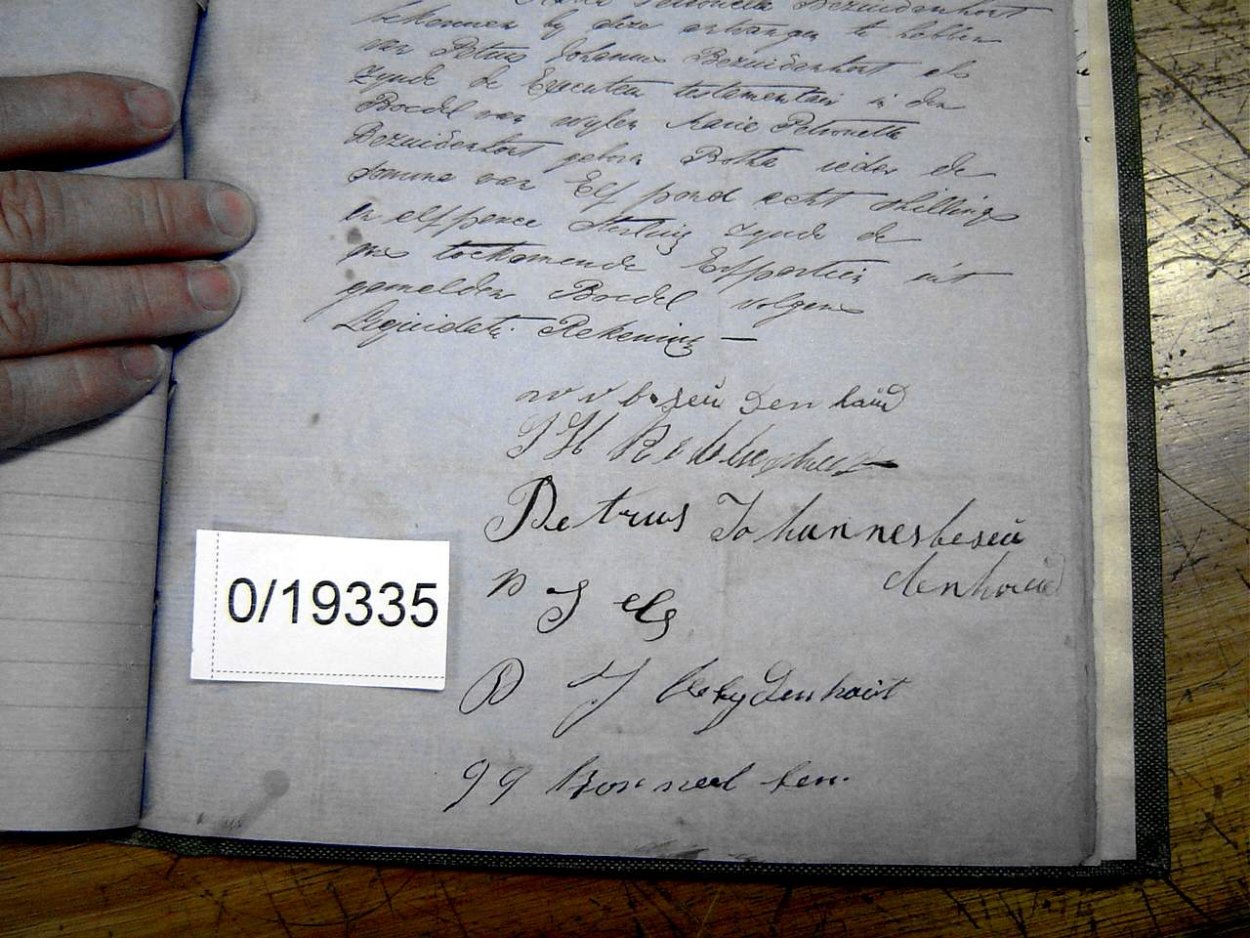 Maria Petronella Bezuidenhout
bekennen by deze ontvangen te hebben
van Petrus Johannes Bezuidenhout als
Zynde de Executeur testamentair in den
Boedel van wylen Maria Petronella
Bezuidenhout geboren Botha ieder de
Somma van Elf pond acht shillings
en elf pence Sterling zynde de
ons toekomende Erfportien uit
gemelden Boedel volgens
Liquidatie Rekening —
w v beseudenhaud
S H
Petrus Johannes beseu
denhoud
P J els
P J Beseydenhout